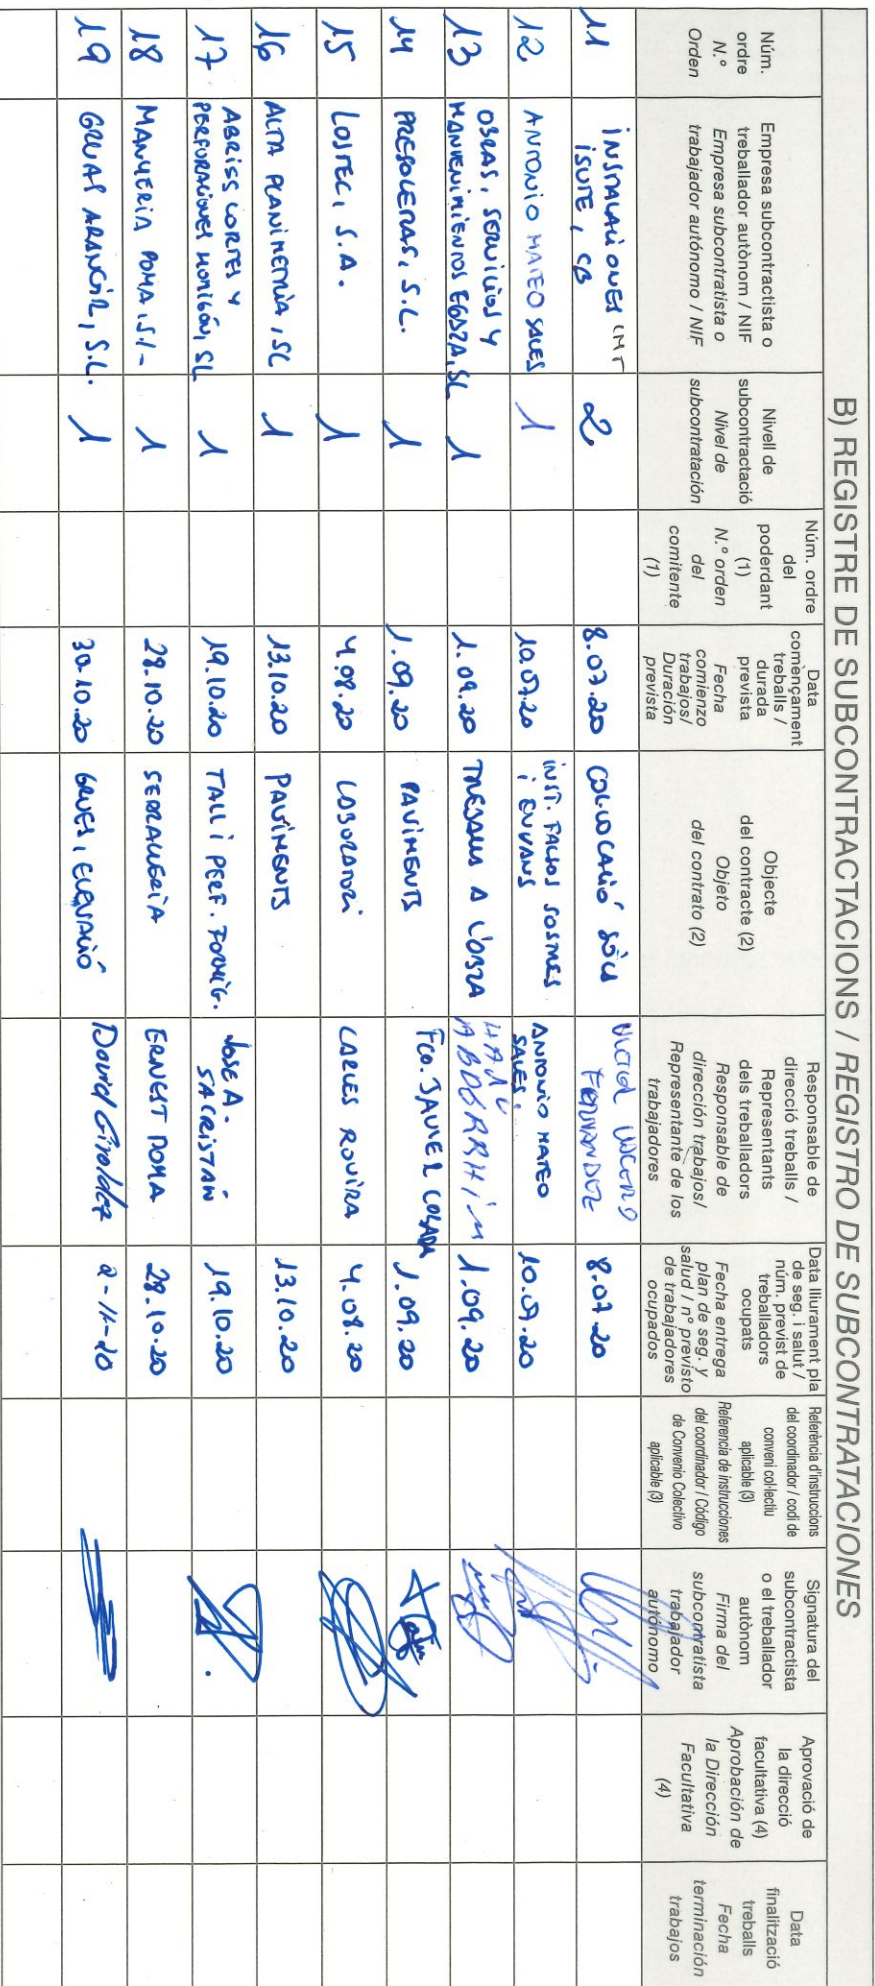 B) REGISTRE DE SUBCONTRACTACIONS / REGISTRO DE SUBCONTRATACIONES
Núm.
ordre
N.º
Orden
Empresa subcontractista o
treballador autònom / NIF
Empresa subcontratista o
trabajador autónomo / NIF
Nivell de
subcontractació
Nivel de
subcontratación
Núm. ordre
del
poderdant
(1)
N.º orden
del
comitente
(1)
Data
començament
treballs /
durada
prevista
Fecha
comienzo
trabajos/
Duración
prevista
Objecte
del contracte (2)
Objeto
del contrato (2)
Responsable de
direcció treballs /
Representants
dels treballadors
Responsable de
dirección trabajos/
Representante de los
trabajadores
Data lliurament pla
de seg. i salut /
núm. previst de
treballadors
ocupats
Fecha entrega
plan de seg. y
salud / nº previsto
de trabajadores
ocupados
Referència d'instruccions
del coordinador / codi de
conveni col·lectiu
aplicable (3)
Referencia de instrucciones
del coordinador / Código
de Convenio Colectivo
aplicable (3)
Signatura del
subcontractista
o el treballador
autònom
Firma del
subcontratista
trabajador
autónomo
Aprovació de
la direcció
facultativa (4)
Aprobación de
la Dirección
Facultativa
(4)
Data
finalització
treballs
Fecha
terminación
trabajos
11
INSTALACIONES
ISUTE, CB
2
8.07.20
COL·LOCACIÓ
FERNANDEZ
8.07.20
12
ANTONIO MATEO SALES
1
10.07.20
INST. FALSOS SOSTRES
I ENVANS
ANTONIO MATEO
SALES.
10.07.20
13
OBRAS, SERVICIOS Y
MANTENIMIENTOS EGARA, SL
1
1.09.20
TREBALLS A L'OBRA
ABDERRHIM
1.09.20
14
PRESOLERAS, S.L.
1
1.09.20
PAVIMENTS
Fco. JAVIER
1.09.20
15
LOSTEC, S.A.
1
4.08.20
LABORATORI
CARLES ROVIRA
4.08.20
16
ALTA PLANIMETRIA, SL
1
13.10.20
PAVIMENTS
13.10.20
17
ABRISS CORTES Y
PERFORACIONES HORMIGÓN, SL
1
19.10.20
TALL I PERF. FORMIG.
JOSE A.
SACRISTAN
19.10.20
18
MANYERIA POMA, S.L.
1
28.10.20
SERRALLERIA
ERNEST POMA
28.10.20
19
GRUAS ARANGIL, S.L.
1
30.10.20
GRUES, ELEVACIÓ
David Giraldez
2-11-20